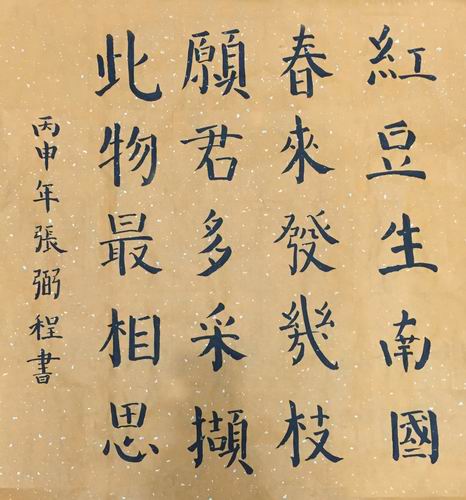 紅豆生南國
春來發幾枝
願君多采擷
此物最相思
丙申年張弼程書